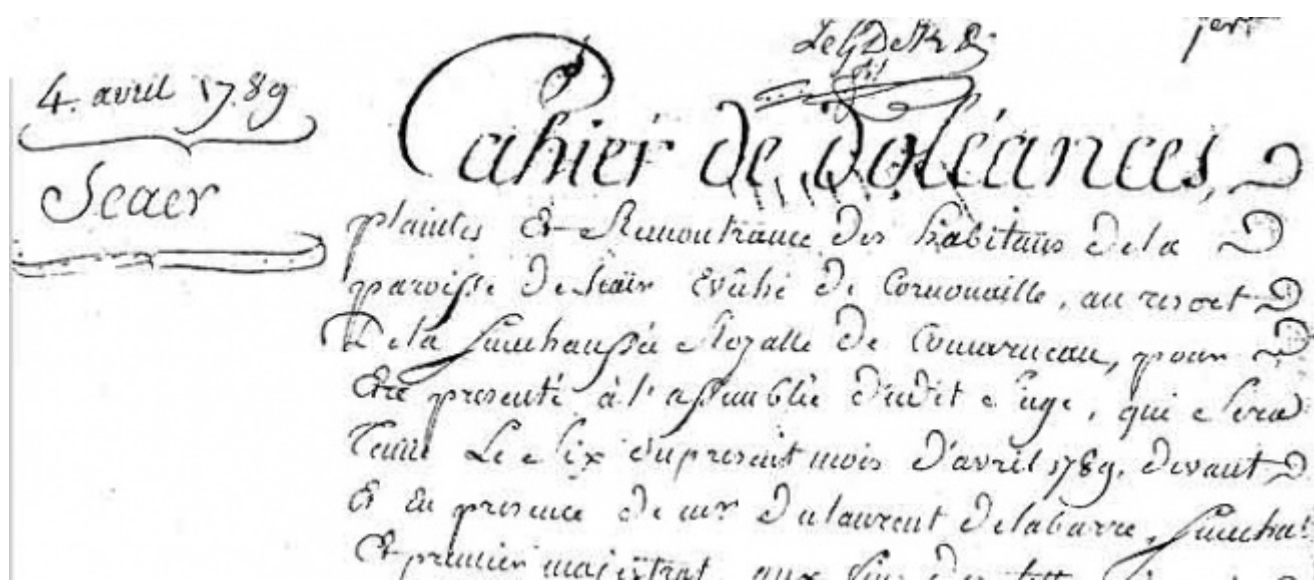 4. avril 1789
Scaer
1er
Cahier de doléances,
plaintes Et Remontrance des habitans de la
paroisse de Scaër Evêché de Cornouaille, au resort
De la Senechaussée Royalle de Concarneau, pour
Etre presenté à l'assemblée dudit siege, qui sera
Tenue Le six du present mois d'avril 1789. devant
Et En presence de mr. Dulaurent Delabarre, Senechal
Et premier majistrat, aux fins des